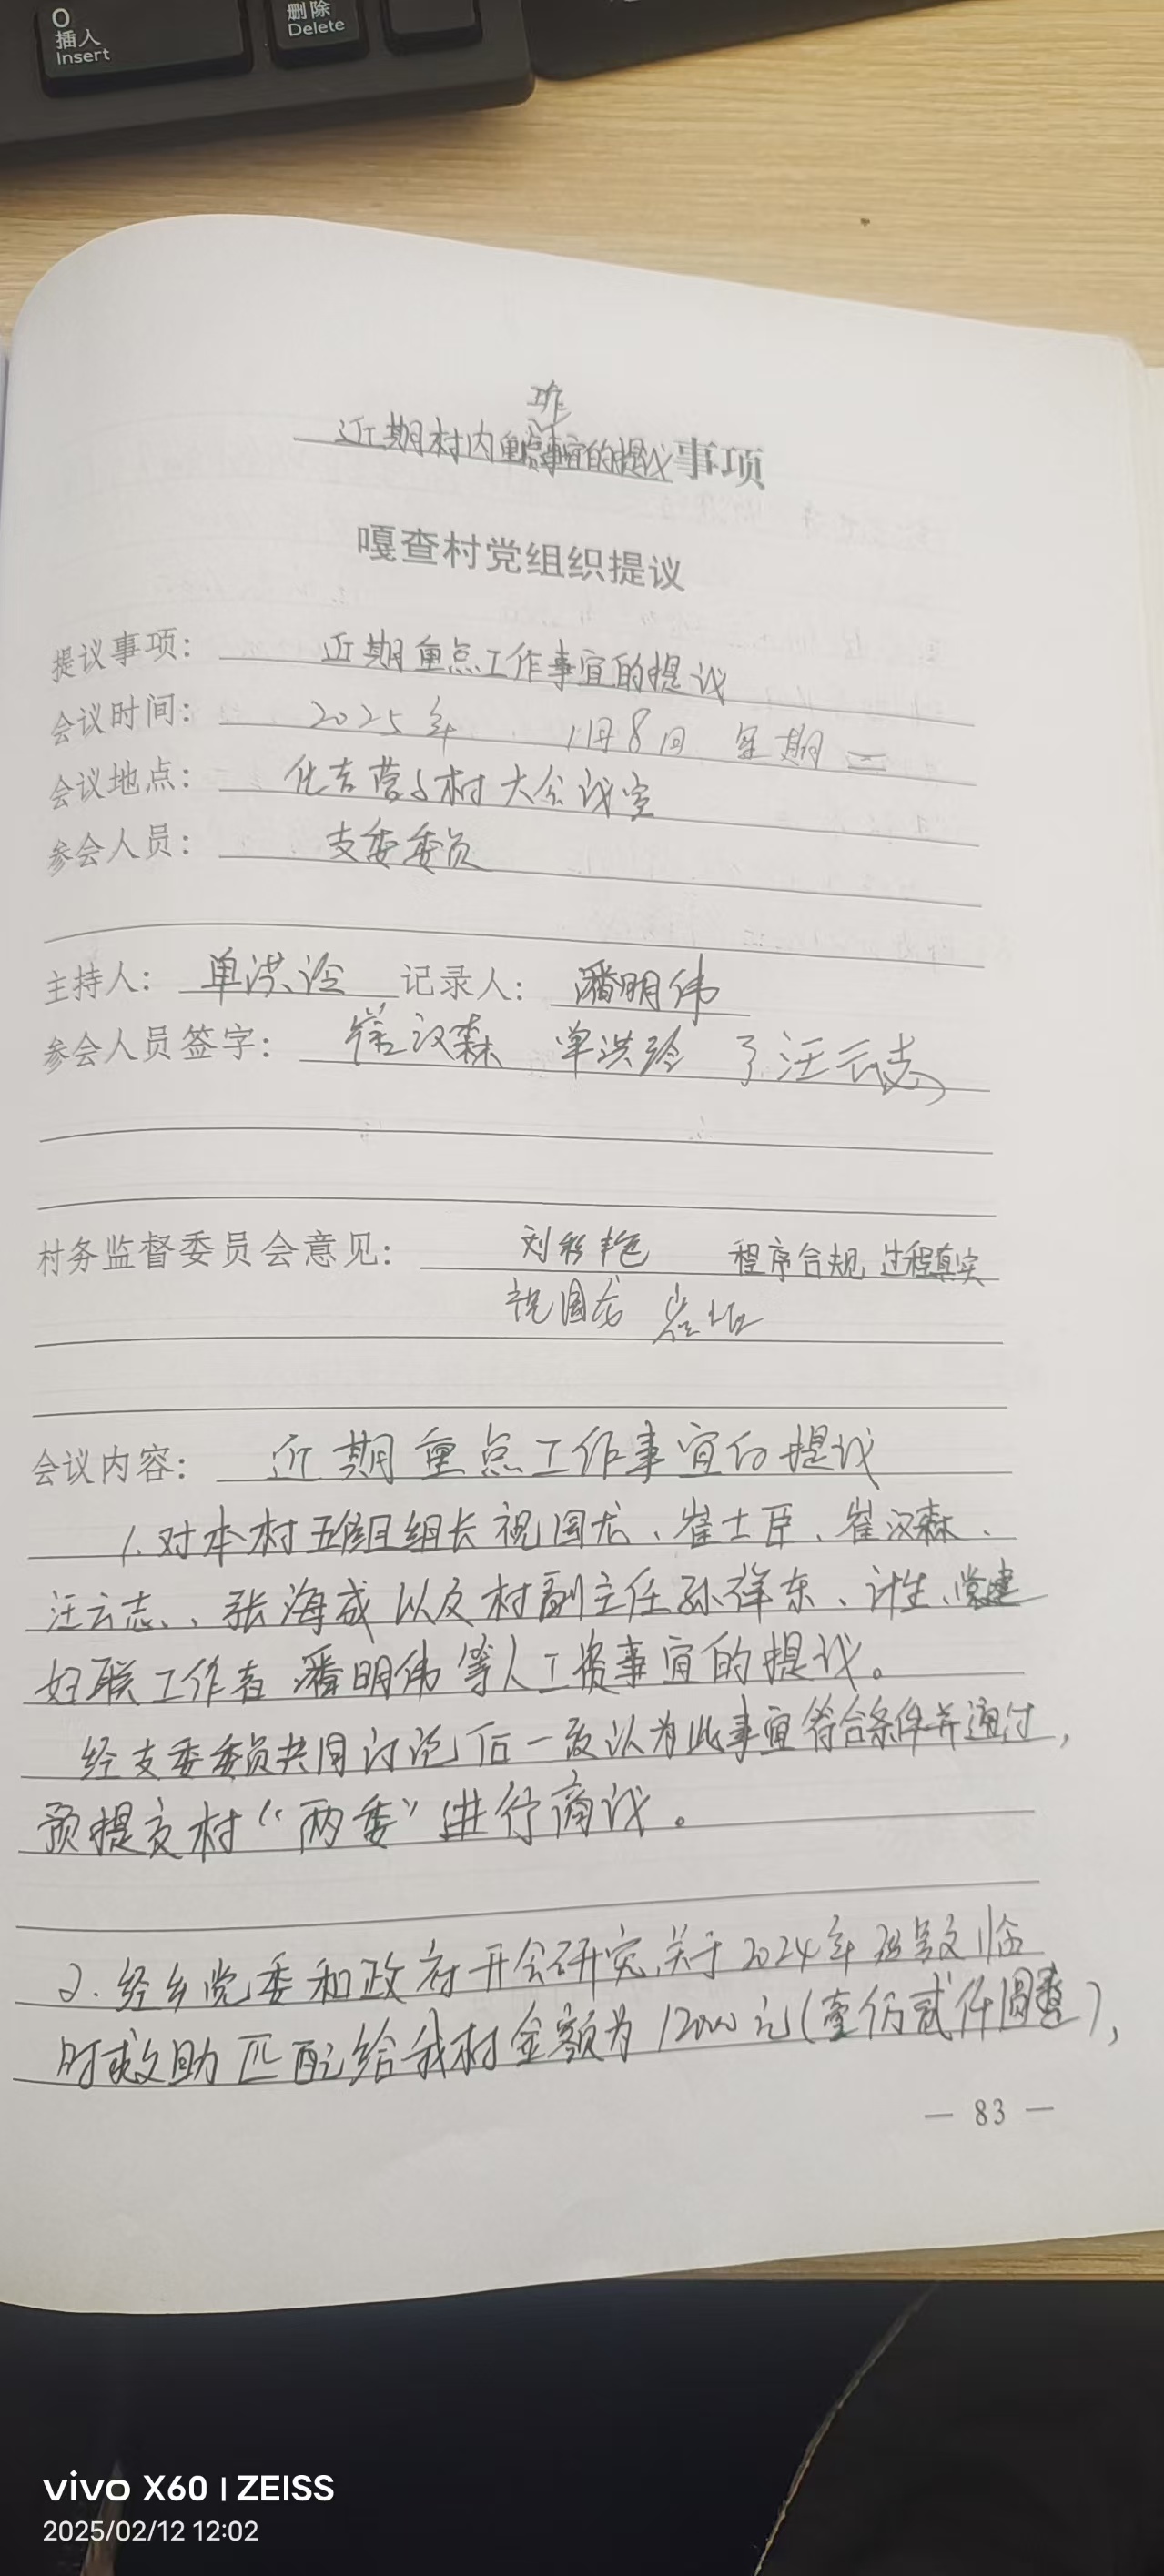 0
插入
Insert
删除
Delete
工作
近期村内重点事宜的提议事项
嘎查村党组织提议
提议事项： 近期重点工作事宜的提议
会议时间： 2025年 1月8日 星期三
会议地点： 化吉营子村大会议室
参会人员： 支委委员
主持人： 单洪玲 记录人： 潘明伟
参会人员签字： 崔汉森 单洪玲 汪云志
村务监督委员会意见： 刘彩艳 程序合规 过程真实
祝国龙
会议内容： 近期重点工作事宜的提议
1.对本村五组组长祝国龙、崔士臣、崔汉森、
汪云志、、张海成以及村副主任孙祥东、计生、党建
妇联工作者潘明伟等人工资事宜的提议。
经支委委员共同讨论后一致认为此事宜符合条件并通过，
预提交村“两委”进行商议。
2.经乡党委和政府开会研究，关于2024年 临
时救助匹配给我村金额为12000元(壹仟贰仟圆整)，
— 83 —
vivo X60 | ZEISS
2025/02/12 12:02